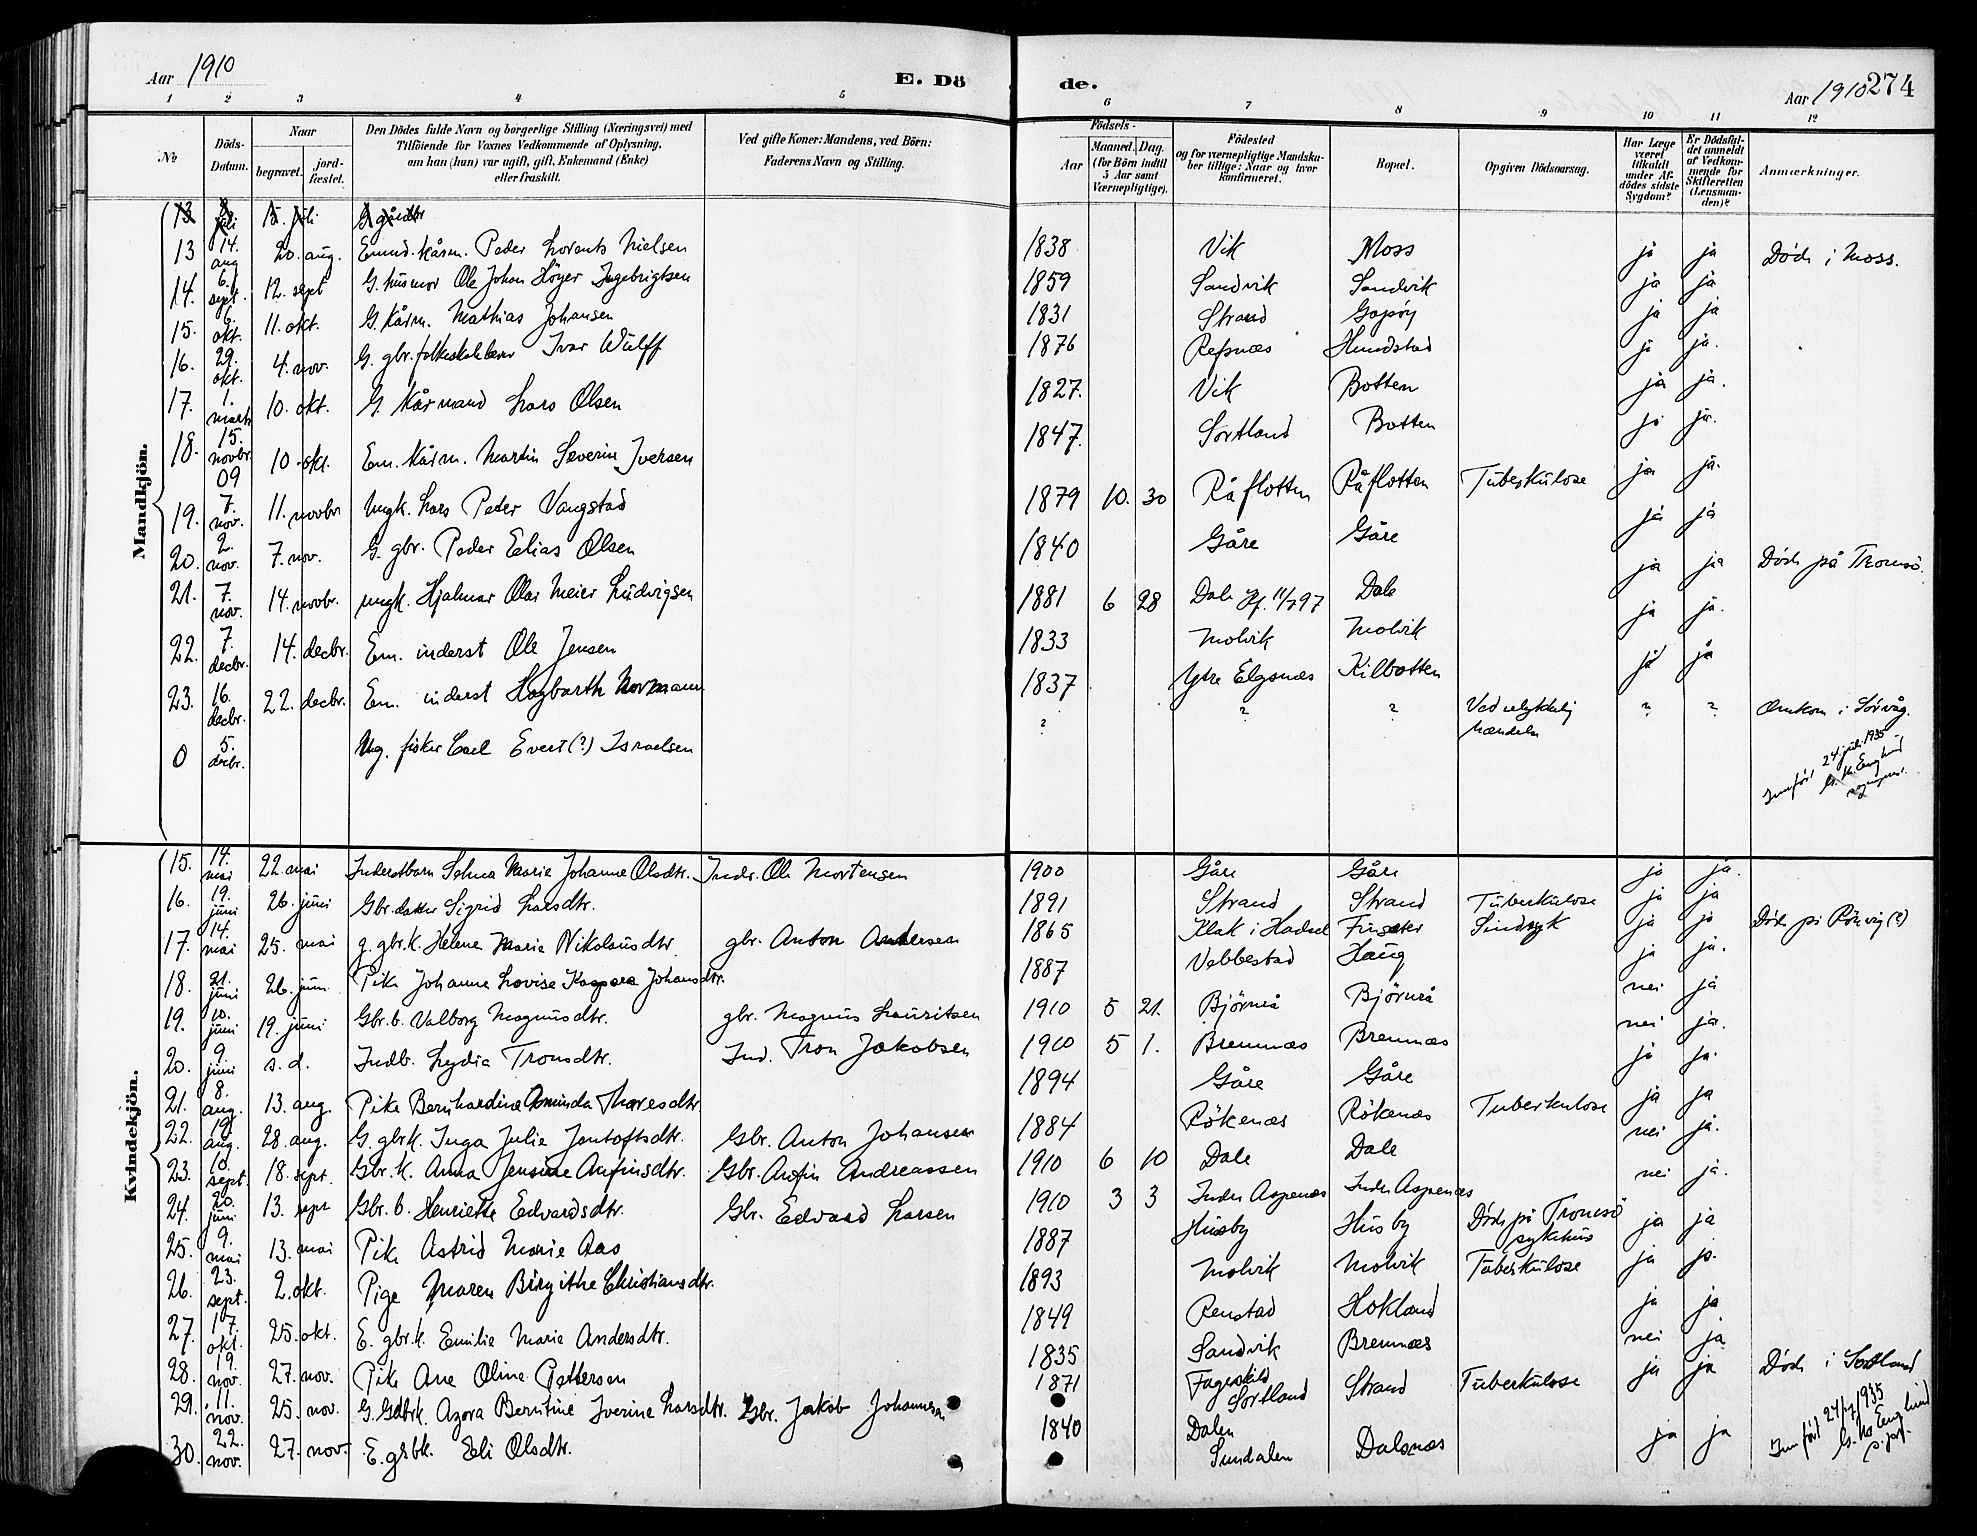 Aar 1910
E. Dö
de.
Aar 1910
274
1 2 3 4 5 6 7 8 9 10 11 12
No
Döds-
Datum.
Naar
begravet.
jord-
fæstet.
Den Dödes fulde Navn og borgerlige Stilling (Næringsvei) med
Tilföiende for Voxnes Vedkommende af Oplysning,
om han (hun) var ugift, gift, Enkemand (Enke)
eller fraskilt.
Ved gifte Koner: Mandens, ved Börn:
Faderens Navn og Stilling.
Födsels-
Aar
Maaned. Dag.
(for Börn indtil
5 Aar samt
Værnepligtige).
Födested
og for værnepligtige Mandska-
ber tillige: Naar og hvor
konfirmeret.
Bopæl.
Opgiven Dödsaarsag.
Har Læge
været
tilkaldt
under Af-
dödes sidste
Sygdom?
Er Dödsfal-
det anmeldt
af Vedkom-
mende for
Skifteretten
(Lensman-
den)?
Anmærkninger.
Mandkjön.
13 juli 15. juli
13 14. aug 20. aug. Enmd. kårm. Peder Lorents Nielsen 1838 Vik Moss ja ja Död i Moss.
14. 6. sept. 12. sept G. husmor Ole Johan Höyer Ingebrigtsen 1859 Sandvik Sandvik ja ja
15. 6. okt. 11. okt. G. kårm. Mathias Johansen 1831 Strand Gapöy ja ja
16. 29. okt. 4. nov. G. gbr. folkeskolelærer Ivar Wulff 1876 Refsnæs Hundstad ja ja.
17. 1. marts 10. okt. G. Kårmand Lars Olsen 1827. Vik Botten ja ja.
18. 15. novbr. 09 10. okt. Em. kårm. Martin Severin Iversen 1847. Sortland Botten ja ja.
19. 7. nov. 11. novbr Ungk. Lars Peder Vangstad 1879 10. 30 Råflotten Råflotten Tuberkulose ja ja.
20. 2. nov. 7. nov. G. gbr. Peder Edias Olsen 1840 Gåre Gåre ja ja
21. 7. nov. 14. novbr. ungk. Hjalmar Olai Meier Ludvigsen 1881 6 28 Dale Kf. 11/7 97 Dale ja ja Död på Tromsö.
22. 7. decbr. 14. decbr. Em. inderst Ole Jensen 1833 Molvik Molvik ja ja.
23. 16. decbr. 22. decbr. Em. inderst Hagbarth Normann 1837 Ytre Elgsnæs Kilbotten ja ja
0 5. decbr. Ug. fisker Carl Evert(?) Israelsen ? ? ? Ved ulykkelig hændelse ? ? Omkom i Sörvåg.
Innfört 24 juli 1935
Kvindekjön.
15. 14. mai 22. mai Inderstbarn Selma Marie Johanne Olsdtr. Inds. Ole Mortensen 1900 Gåre Gåre ja ja.
16. 19. juni 26. juni Gbr. datter Sigrid Larsdtr. 1891 Strand Strand Tuberkulose ja ja
17. 14. mai 25. mai g. gbr. k. Helene Marie Nikolausdtr. gbr. Anton Andersen 1865 Klak i Hadsel Finsæter Sindsyk ja ja Död på Rönvig(?)
18. 21. juni 26. juni Pike Johanne Lovise Kaspara Johansdtr. 1887 Vebbestad Haug ja ja.
19. 10. juni 19. juni Gbr. b. Valborg Magnusdtr. gbr. Magnus Lauritsen 1910 5 21. Björnrå Björnrå nei ja
20. 9. juni s. d. Indb. Lydia Tronsdtr. Ind. Tron Jakobsen 1910 5 1. Bremnæs Bremnæs nei ja.
21. 8. aug. 13. aug. Pike Bernhardine Asminda Thoresdtr 1894 Gåre Gåre ja ja.
22. 19. aug. 28. aug. G. gbr.k. Inga Julie Jontoftsdtr. Gbr. Anton Johansen 1884 Rökenæs Rökenæs Tuberkulose ja ja
23. 10. sept. 18. sept. Gbr. k. Anna Jensine Arfinsdtr. Gbr. Arfin Andreassen 1910 6 10 Dale Dale nei ja.
24. 20. juni 13. sept Gbr. b. Henriette Edvardsdtr. Gbr. Edvard Larsen 1910 3 3 Indre Aspenæs Indre Aspenæs nei ja.
25. 9. mai 13. mai Pike Astrid Marie Aas 1887 Husby Husby Död på Tromsö sykehus ja ja
26. 23. sept. 2. okt. Pige Maren Birgithe Christiansdtr. 1893 Molvik Molvik Tuberkulose ja ja.
27. 17. okt. 25. okt. E. gbr. k. Emilie Marie Andersdtr. 1849 Renstad Hokland ja ja
28. 19. nov. 27. nov. Pike Ane Oline Pettersen 1835 Sandvik Bremnæs nei ja
29. 11. nov. 25. nov. G. Gdbrk. Azora Berntine Iverine Larsdtr. Gbr. Jakob Johannesen 1871 Sortland Strand Tuberkulose ja ja Död i Sortland
30. 22. nov. 27. nov. E. gbk. Eli Olsdtr. 1840 Dalen Sundalen Dalsnæs ja ja Innfört 24/7 1935